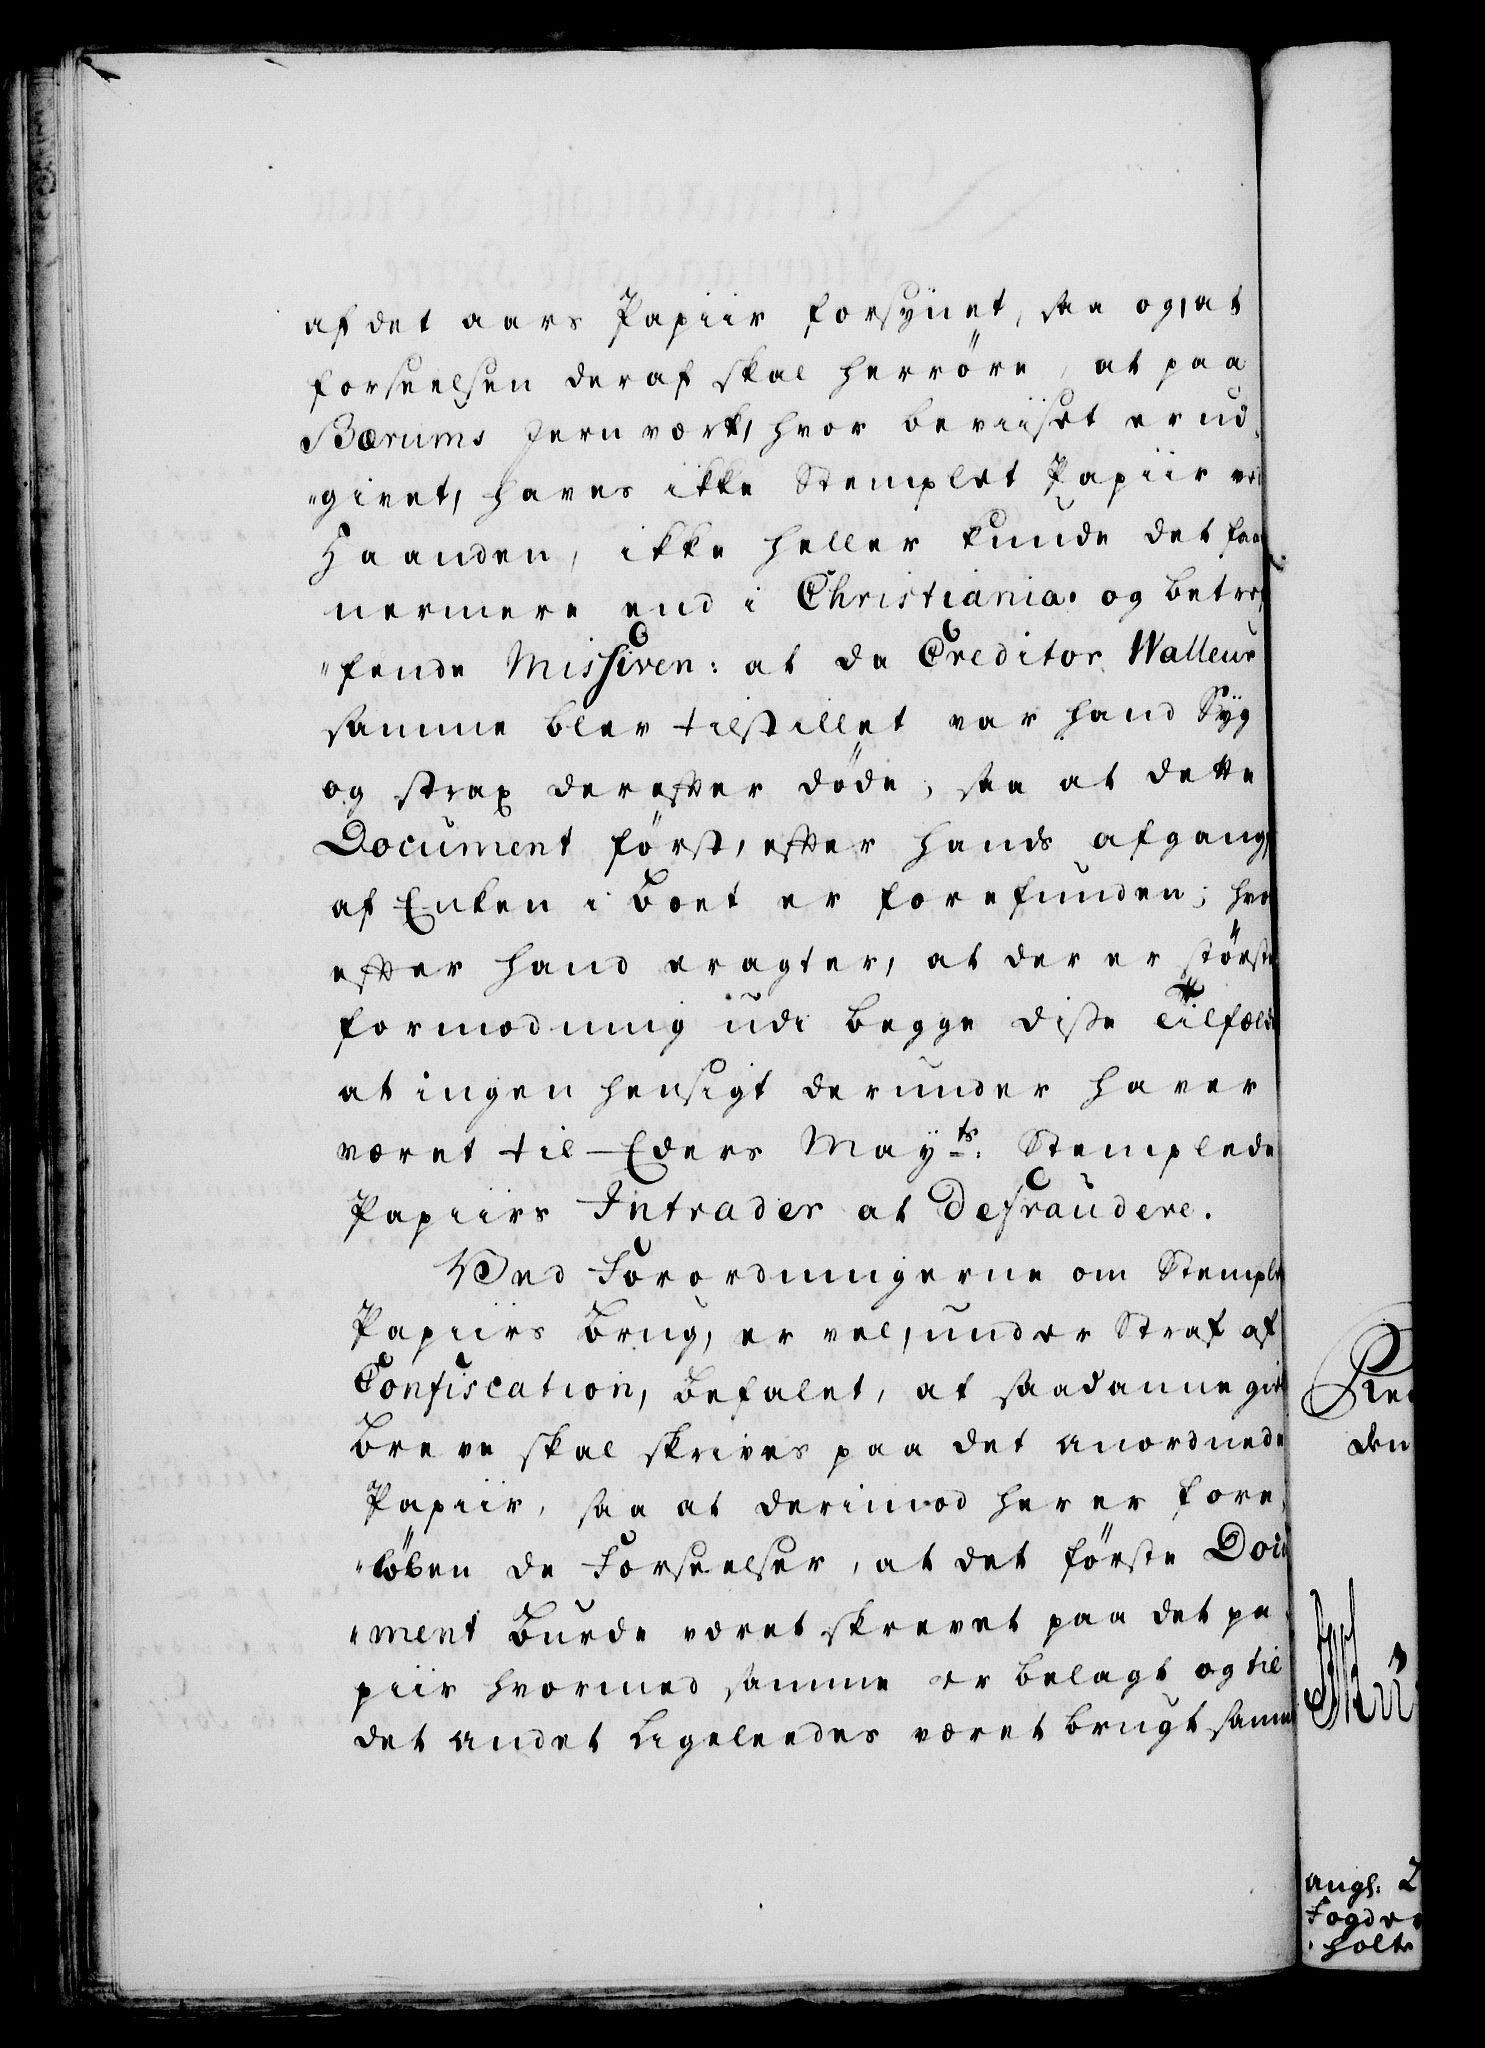 af det aars Papiir forsÿnet, saa og, at
forseelsen deraf skal herröre, at paa
Bærums Jernværk, hvor beviiset er ud-
"givet, haves ikke Stemplet Papiir ved
Haanden, ikke heller kunde det faaes
nermere end i Christiania. og betref-
"fende Missiven: at da Creditor Walleur
samme blev tilstillet var hand Sÿg
og strax derefter döde, saa at dette
Document först, efter hands afgang,
af Enken i Boet er forefunden; hvor
efter hand eragter, at der er störste
formodning udi begge disse Tilfælde
at ingen hensigt derunder haver
været til Eders Maÿts. Stemplede
Papiirs Intrader at defraudere.
Ved Forordningerne om Stemplet
Papiirs Brug, er vel, under Straf af
Confiscation, befalet, at saadanne gields
Breve skal skrives paa det anordnede
Papiir, saa at derimod her er fore-
"löben de Forseelser, at det förste Docu-
"ment Burde været skrevet paa det pa-
piir hvormed samme er belagt og til
det andet Ligeleedes været brugt samme
den
angl:
Fogde
holts